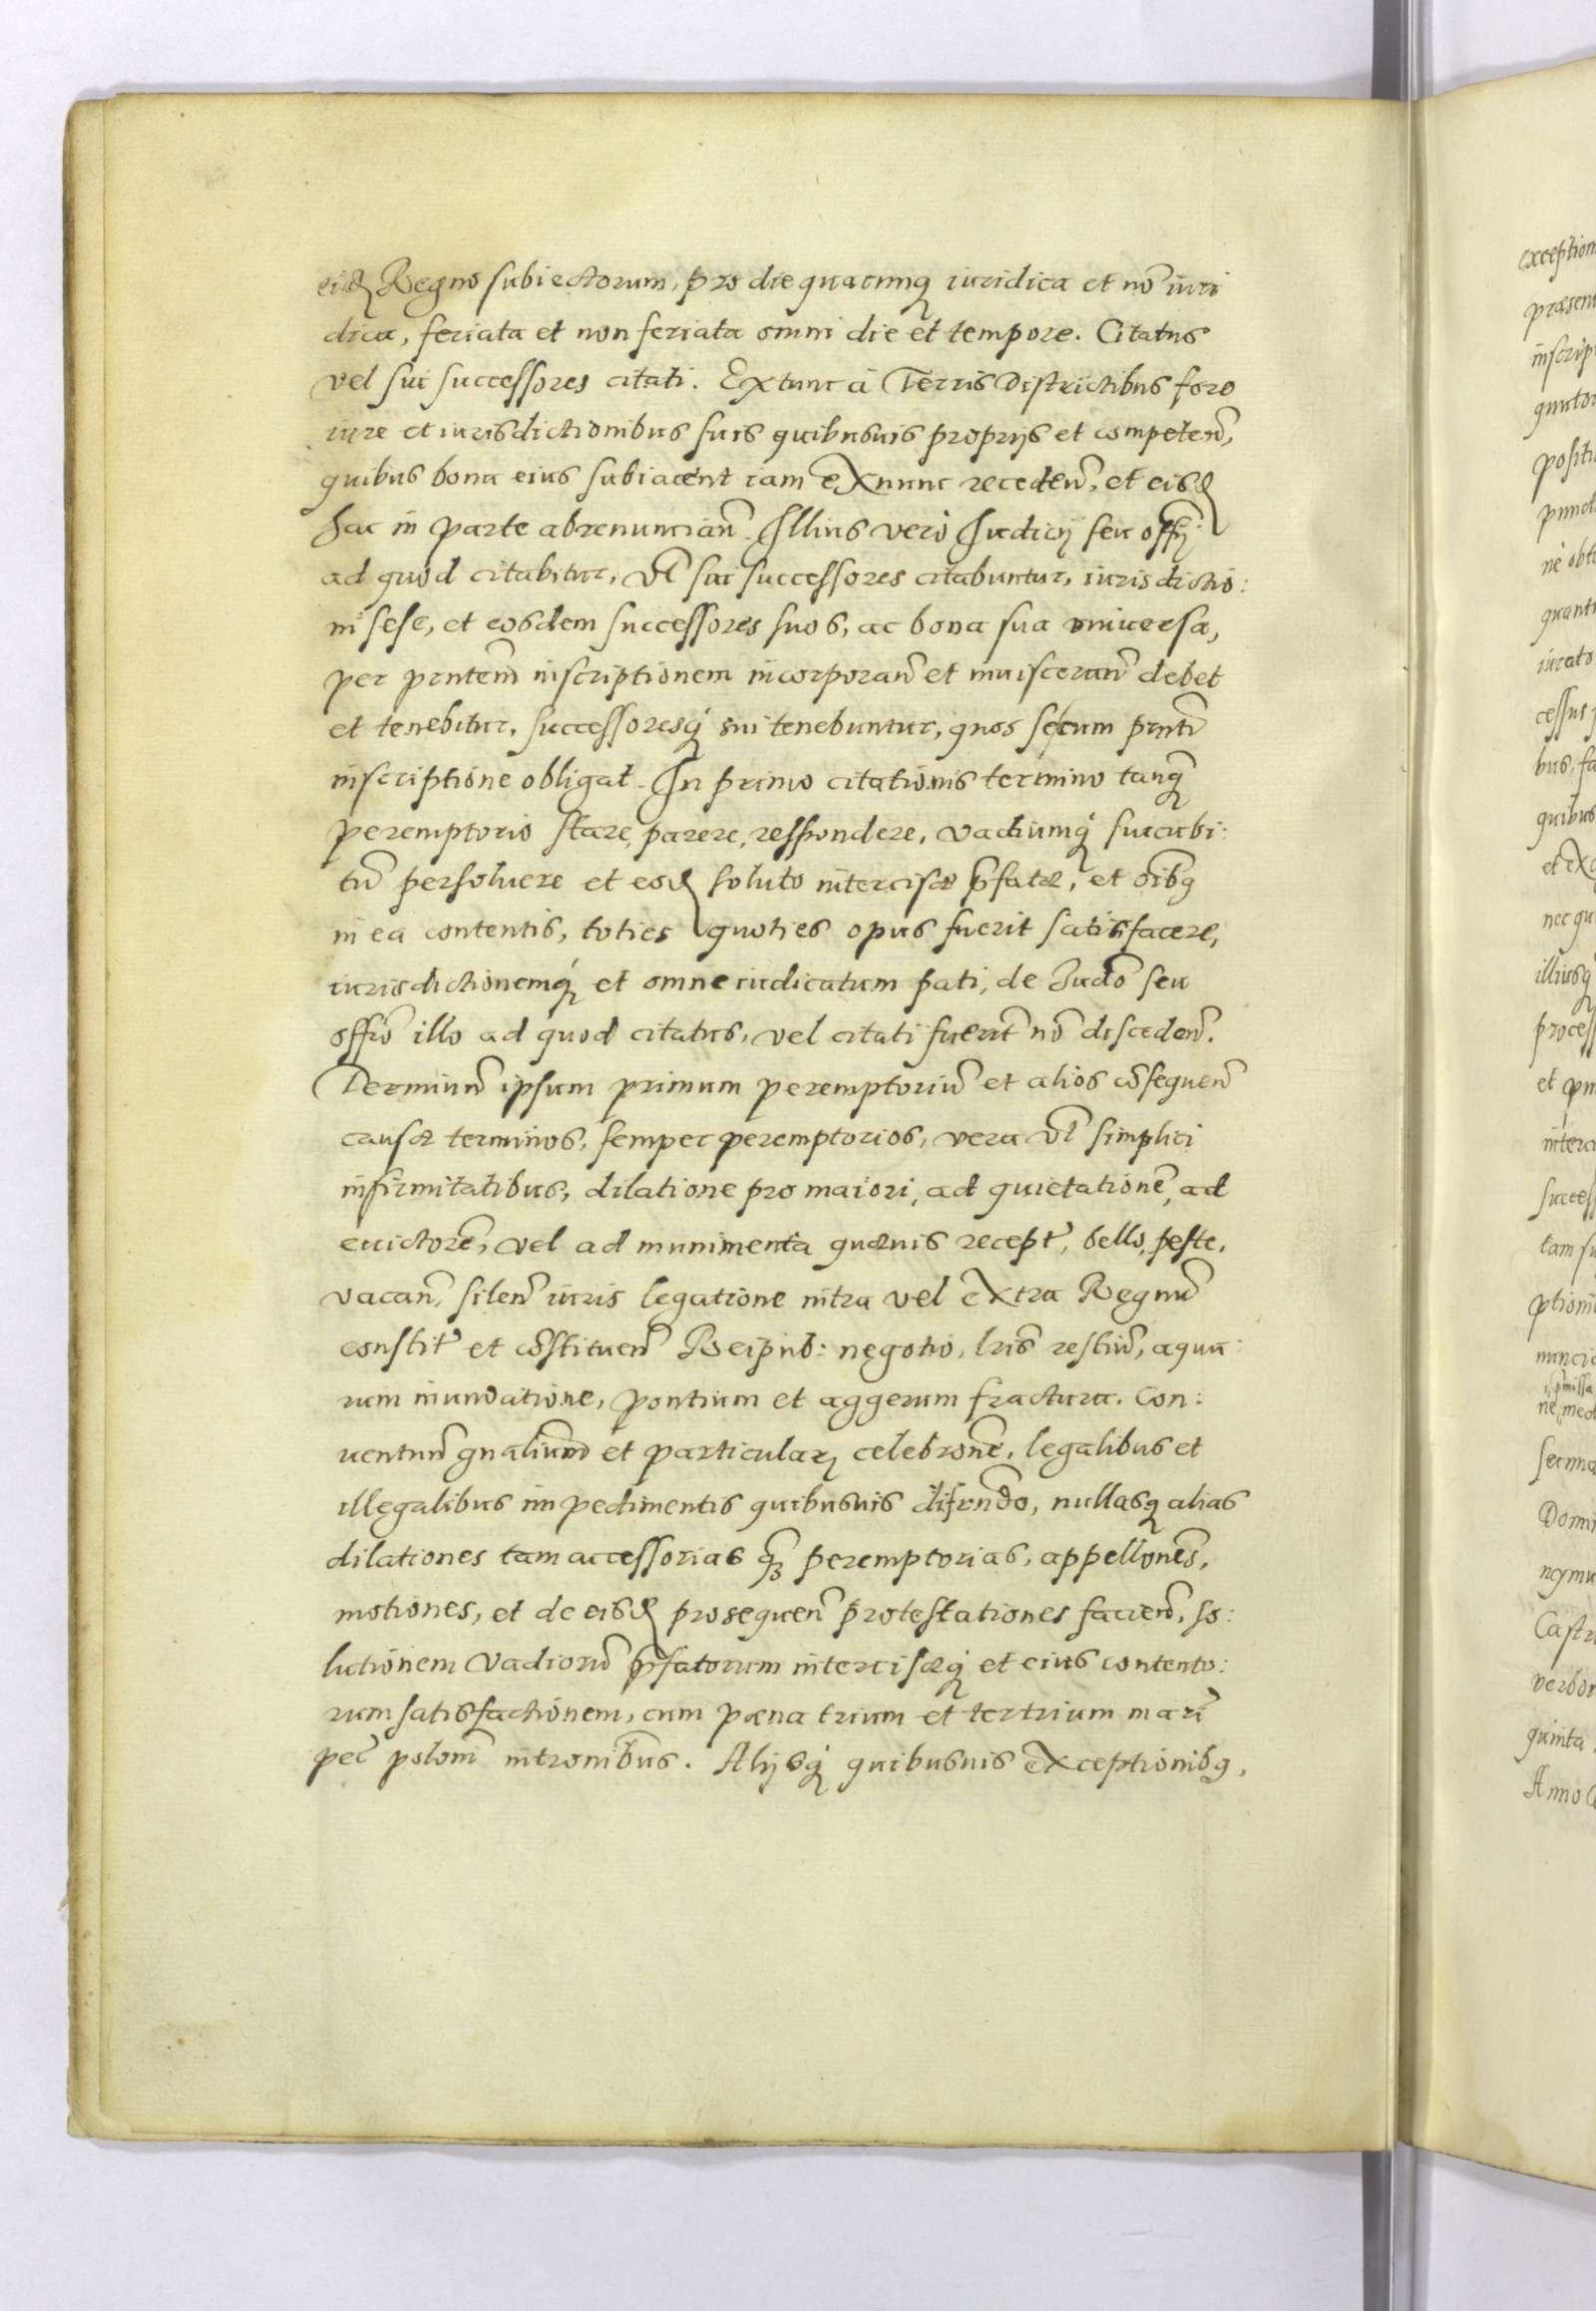 eisd Regno subiectorum, pro die quacunq iuridica et nō iuri
dica, feriata et non feriata omni die et tempore. Citatus
vel sui successores citati. Extunc à Terris Districtibus foro
iure et iurisdictionibus suis quibusuis proprijs et competeñ,
quibus bona eius subiacent iam exnunc recedeñ, et eisd
hac in parte abrenuncian̄. Illius verò Iudicij seu offij
ad quod citabitur, vl̄ sui successores citabuntur, iurisdictio:
ni sese, et eosdem successores suos, ac bona sua vniuersa,
per pn̄tem inscriptionem incorporan̄ et inuisceran̄ debet
et tenebitur, successoresq́ sui tenebuntur, quos secum pn̄ti
inscriptione obligat. In primo citationis termino tanq̄
peremptorio stare, parere, respondere, vadiumq́ succubi:
tū persoluere et eod soluto intercisæ p̄fatæ, et oīb9
in ea contentis, toties quoties opus fuerit satisfacere,
iurisdictionemq́ et omne iudicatum pati, de Iudō seu
offio illo ad quod citatus, vel citati fuerit nō disceden̄.
Terminū ipsum primum peremptoriū et alios cōsequen̄
causæ terminos, semper peremptorios, vera vl̄ simplici
infirmitatibus, dilatione pro maiori, ad quietationē, ad
euictorē, vel ad munimenta quæuis recept̄, bello, peste,
vacan̄, silen̄ iuris legatione intra vel extra Regnū
constit̄ et cōstituen̄ Reipub: negotio, lris̄ restiū, aqua:
rum inundatione, pontium et aggerum fractura. Con:
uentuū gnaliūm et particularꝫ celebrone, legalibus et
illegalibus impedimentis quibusuis difrndo, nullasq alias
dilationes tam accessorias q̄ꝫ peremptorias, appellones,
motiones, et de eisd prosequen̄ protestationes facien̄, so:
lutionem Vadiorū p̄fatorum intercisæq́ et eius contento:
rum satisfactionem, cum pœna trium et tertrium mari
pec̄ poloni introni̅bus. Alijsq́ quibusuis exceptionib9,